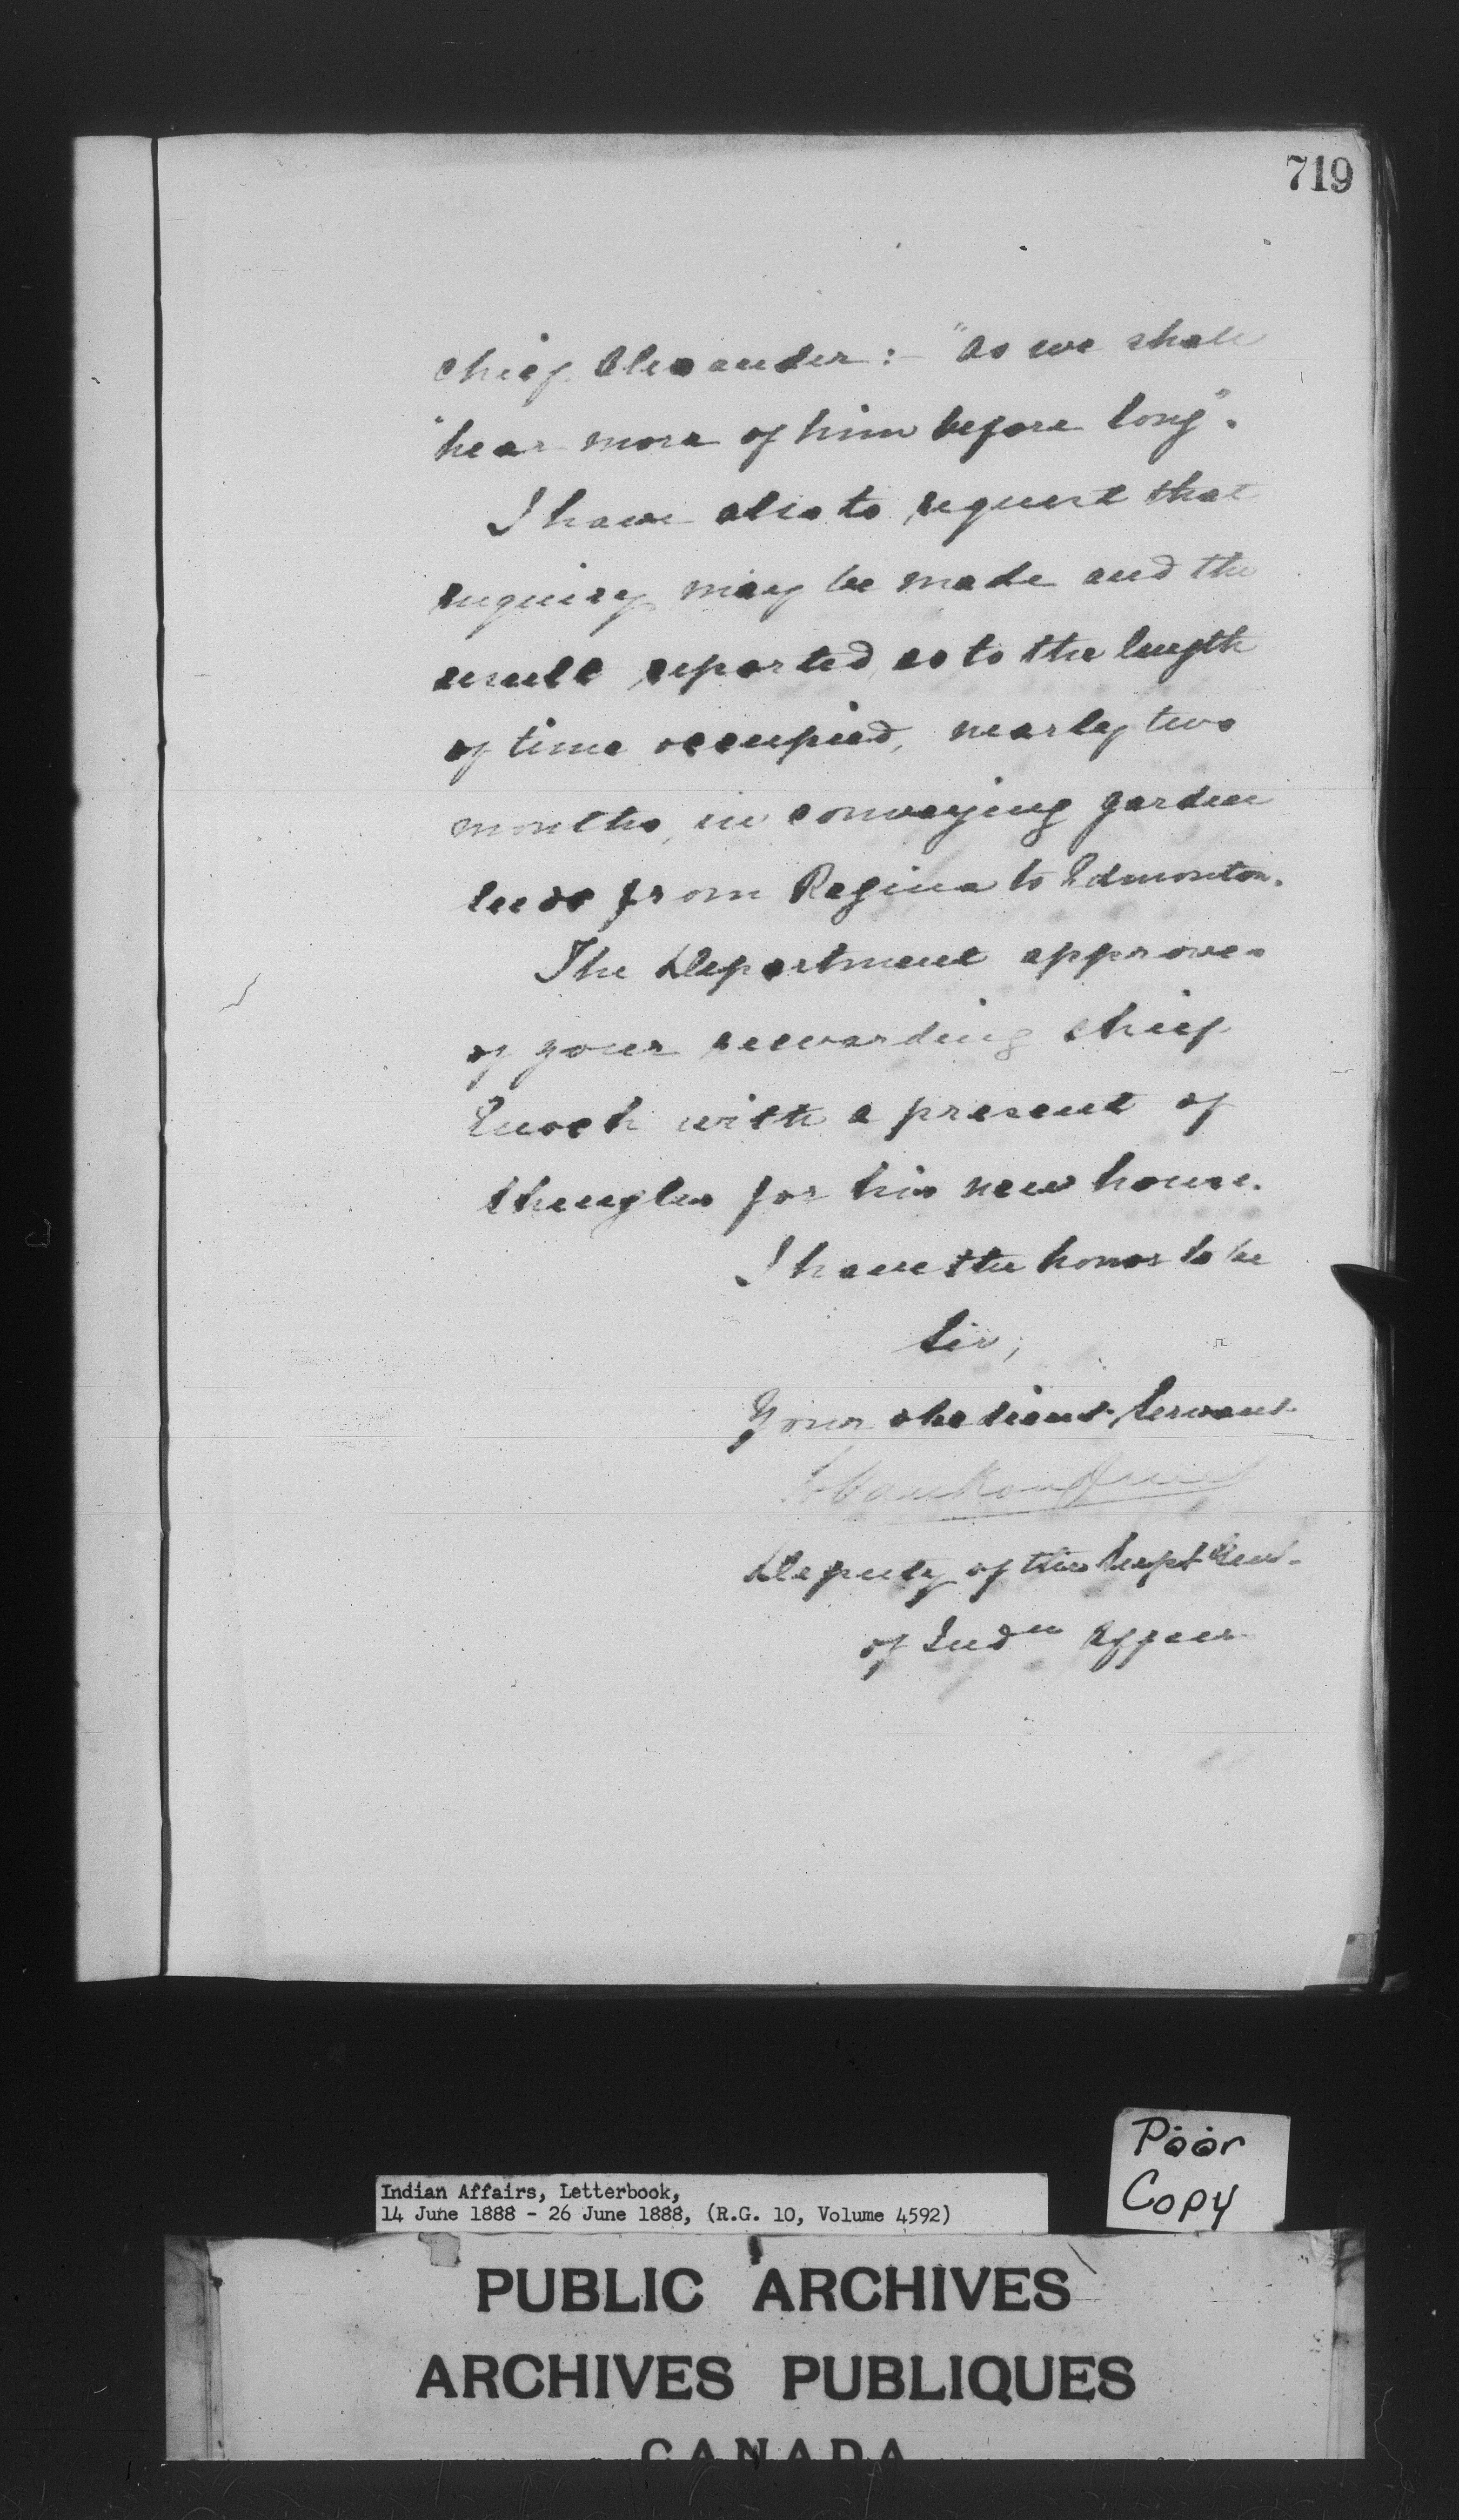 719
Chief Alexander :- "As we shall
"hear more of him before long".
I have also to request that
inquiry may be made and the
result reported as to the length
of time occupied, nearly two
months, in conveying garden
seeds from Regina to Edmonton.
The Department approves
of your rewarding Chief
Enoch with a present of
shingles for his new house.
I have the honor to be
Sir,
Your obedient Servant
L. Vankoughnet
Deputy of the Supt Genl.
of Indn Affairs
Poor
Copy
Indian Affairs, Letterbook,
14 June 1888 - 26 June 1888, (R.G. 10, Volume 4592)
PUBLIC ARCHIVES
ARCHIVES PUBLIQUES
CANADA